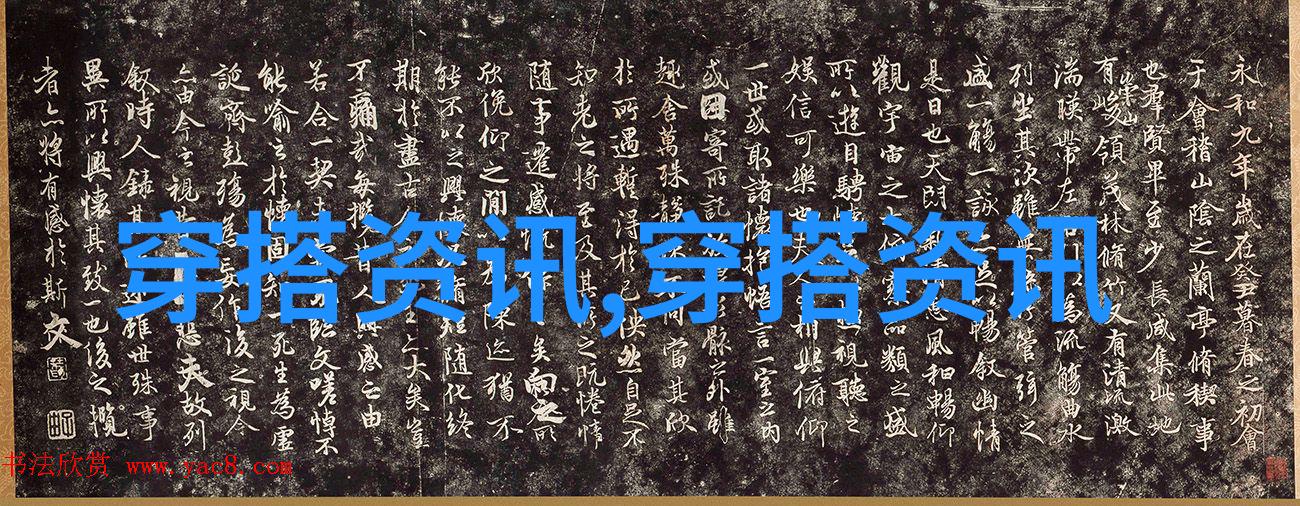 永和九年歲在癸丑暮春之初會
于會稽山陰之蘭亭脩稧事
也羣賢畢至少長咸集此地
有崇山峻領茂林脩竹又有清流激
湍暎帶左右為流觴曲水
列坐其次雖無竹管弦之
盛一觴一詠足以暢敘幽情
是日也天朗清惠風和暢仰
觀宇宙之俯察品類之盛
所以遊目騁極視聽之
娛信可樂也夫人相與俯仰
一世或取諸懷抱悟言一室之內
或因寄所託骸之外雖
趣舍萬殊靜不同當其欣
於所遇暫得於己怏然自足不
知老之將至及其所之既惓情
隨事遷感慨矣向之所
欣俛仰之閒以陳迹猶不
能不以之興懷脩短隨化終
期於盡古人大矣豈
不痛哉每攬昔人興感之由
若合一契未臨文嗟悼不
能喻之於懷固知一死生為虛
誕齊彭殤為妄作後之視今
亦由今之視悲夫故列
敘時人錄其述雖世殊事
異所以興懷其致一也後之攬
者亦將有感於斯文
穿搭资讯,穿搭资讯
书法欣赏 www.yac8.com